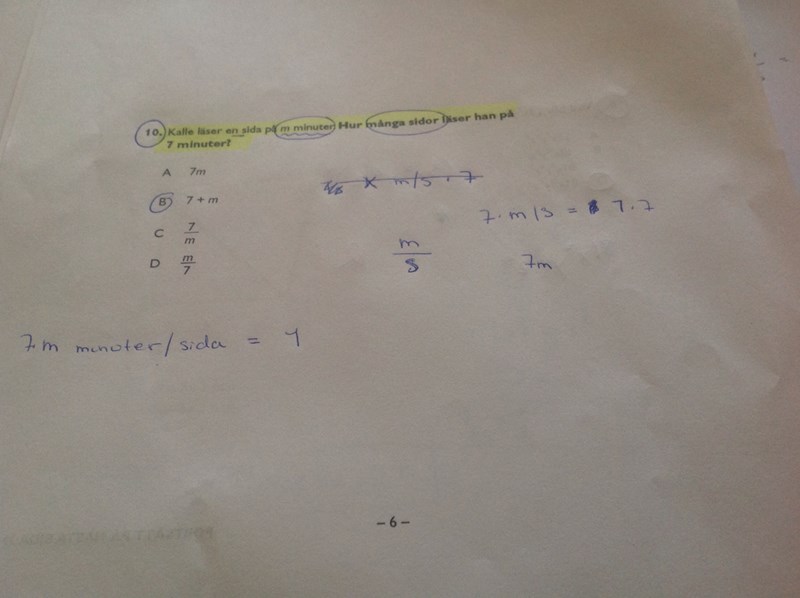 10. Kalle läser en sida på m minuter. Hur många sidor läser han på
7 minuter?
A 7m
B 7 + m
C 7/m
D m/7
m/s · 7
7 · m/s = 7 · 7
m/s
7m
7m minuter/sida =
– 6 –